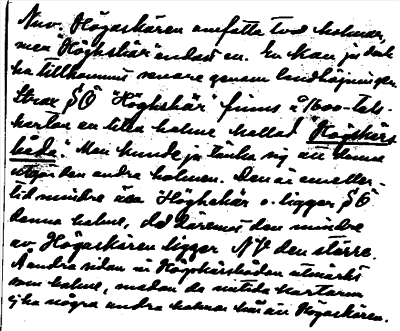 Nuv. Högaskären omfatta två holmar,
men "Höghskär" endast en. En kan ju dock
ha tillkommit senare genom landhöjningen.
Strax SÖ "Höghskär" finns å 1600-tals-
kartan en liten holme kallad "Högskärs
båda". Man kunde ju tänka sig att denne
utgör den andra holmen. Den är emeller-
tid mindre än Höghskär o. ligger SÖ
denna holme, då däremot den mindre
av Högaskären ligger NV den större.
Å andra sidan är Högskärsbådan utmärkt
som holme, medan de nutida kartorna
ej ha några andra holmar här än Högaskären.